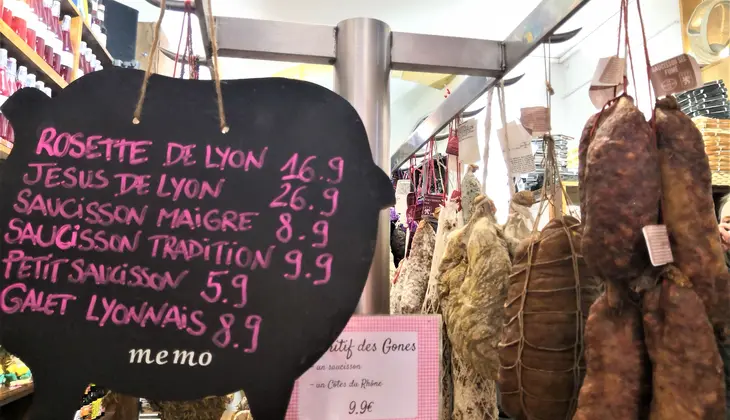 ROSETTE DE LYON 16.9
JESUS DE LYON 26.9
SAUCISSON MAIGRE 8.9
SAUCISSON TRADITION 9.9
PETIT SAUCISSON 5.9
GALET LYONNAIS 8.9
memo
des Gones
- un saucisson
- un Côtes du Rhône
9.9€